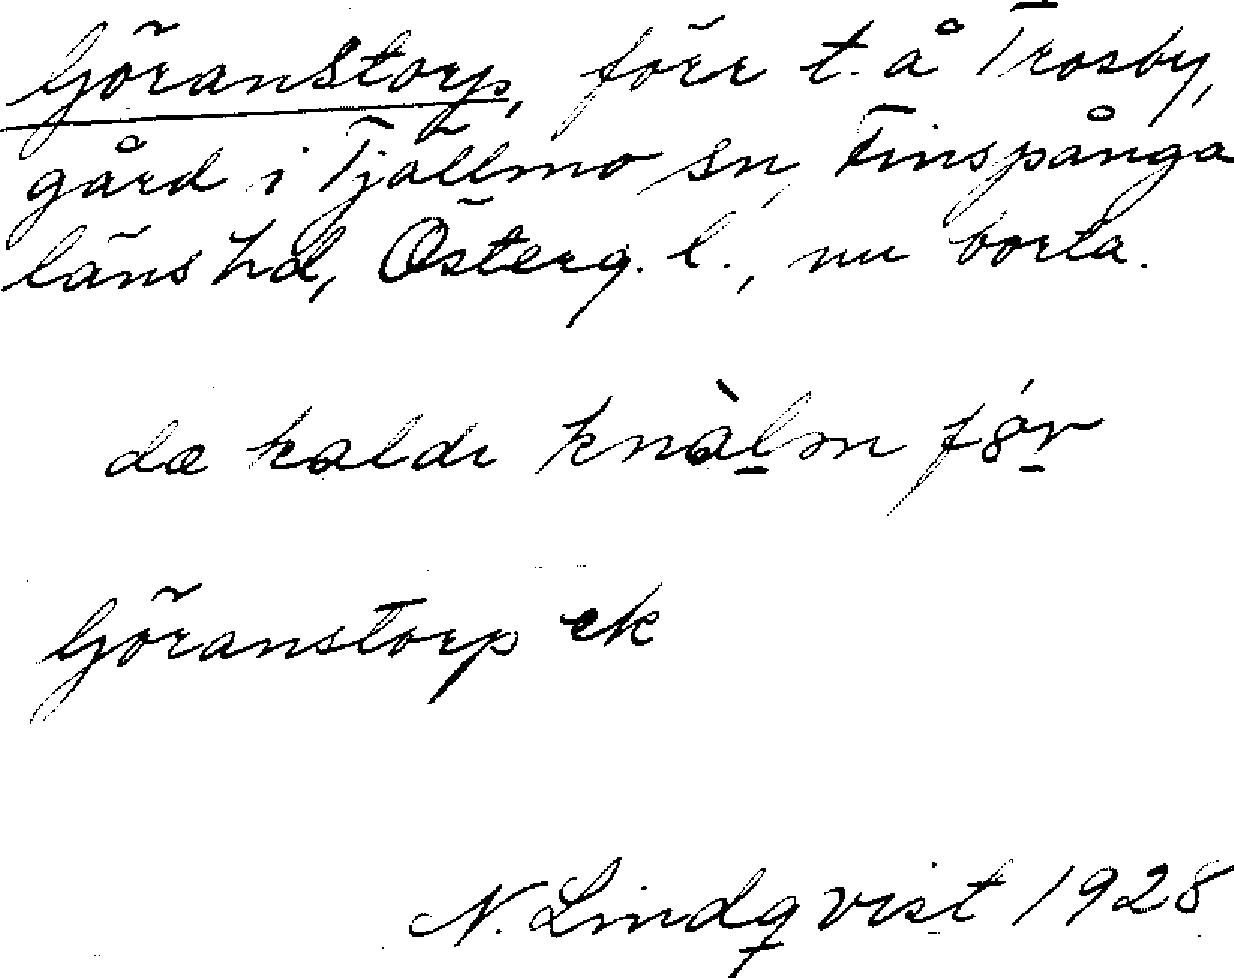 Göranstorp, förr t. å Trosby,
gård i Tjällmo sn, Finspånga
läns hd, Österg. l., nu borta.
dæ kalde knàlm för
Göranstorp ek
N. Lindqvist 1928